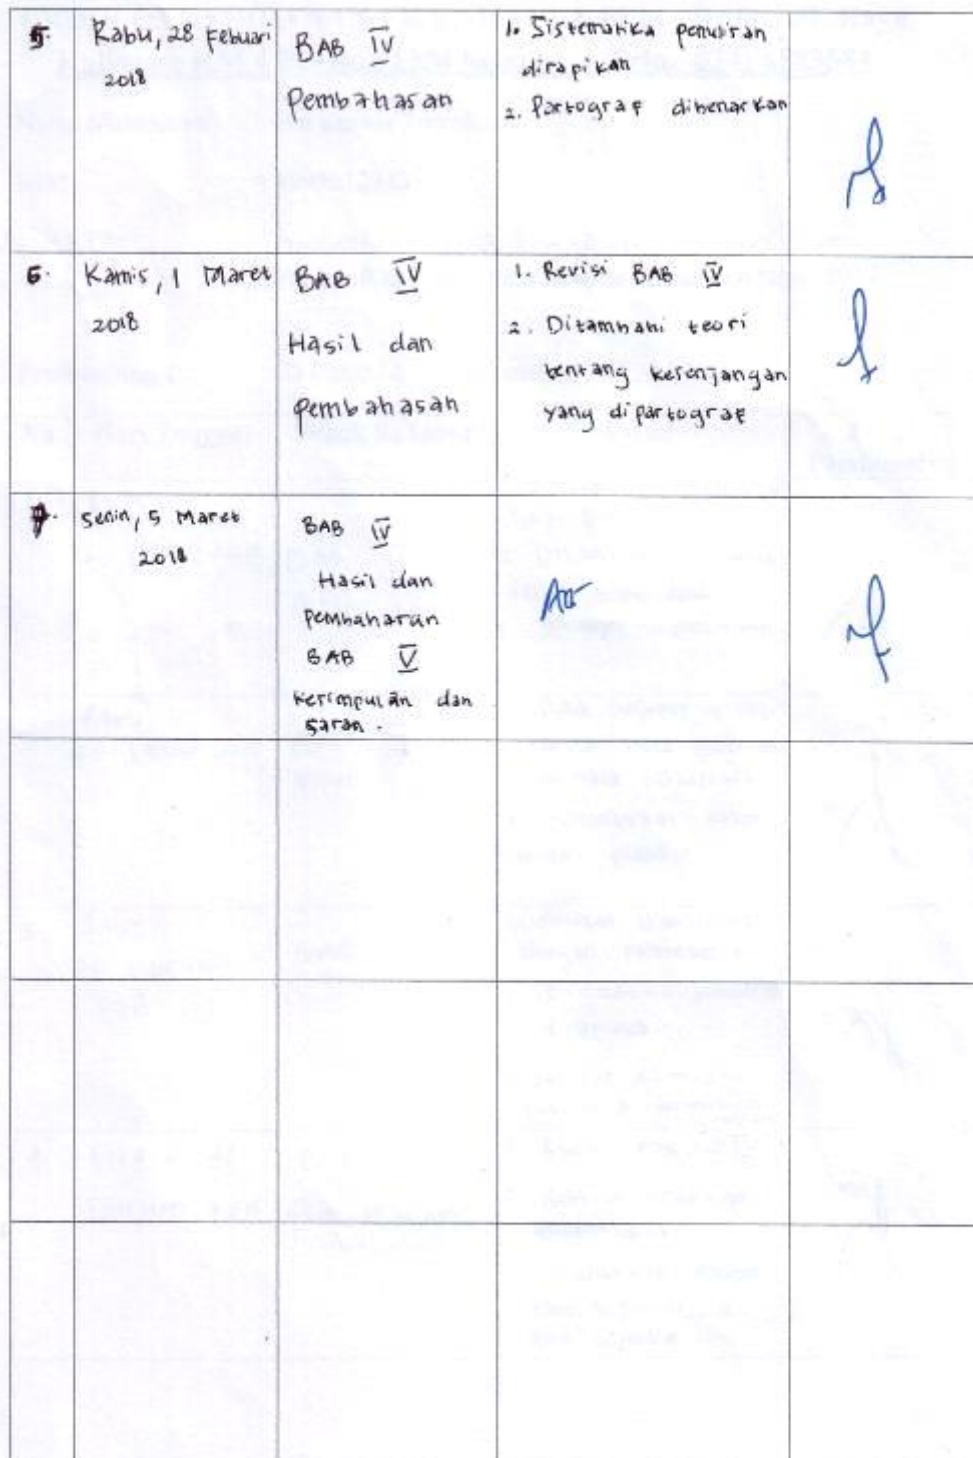 5. Rabu, 28 Febuari
2018
BAB IV
Pembahasan
1. Sistematika penulisan
dirapikan
2. Partograf dibenarkan
6. Kamis, 1 Maret
2018
BAB IV
Hasil dan
pembahasan
1. Revisi BAB IV
2. Ditambahi teori
tentang kesenjangan
yang dipartograf
7. Senin, 5 Maret
2018
BAB IV
Hasil dan
pembahasan
BAB V
kesimpulan dan
saran.